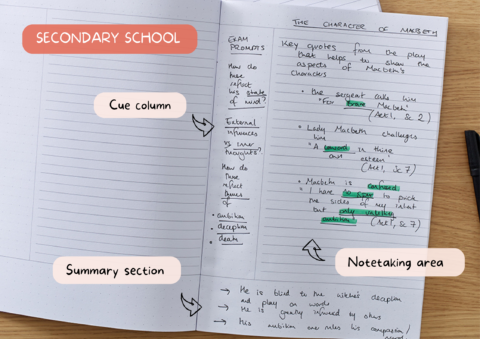 SECONDARY SCHOOL
THE CHARACTER OF MACBETH
Cue column
EXAM
PROMPTS
How do
these
reflect
his state
of mind?
External
influences
vs inner
thoughts?
How do
these
reflect
themes
of
• ambition
• deception
• death
Key quotes from the play
that helps to show the
aspects of Macbeth's
characters
• the sergeant calls him
"For brave Macbeth"
(Act 1, Sc 2)
• Lady Macbeth challenges
him
"A coward in thine
own esteem"
(Act 1, Sc 7)
• Macbeth is confused
"I have no spur to prick
the sides of my intent
but only vaulting
ambition" (Act 1, Sc 7)
Notetaking area
Summary section
→ He is blind to the witches' deception
and play on words
→ He is greatly influenced by others
→ His ambition over rules his compassion /